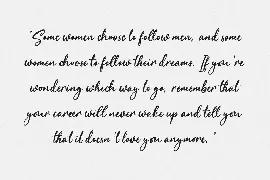 "Some women choose to follow men, and some
women choose to follow their dreams. If you're
wondering which way to go, remember that
your career will never wake up and tell you
that it doesn't love you anymore."